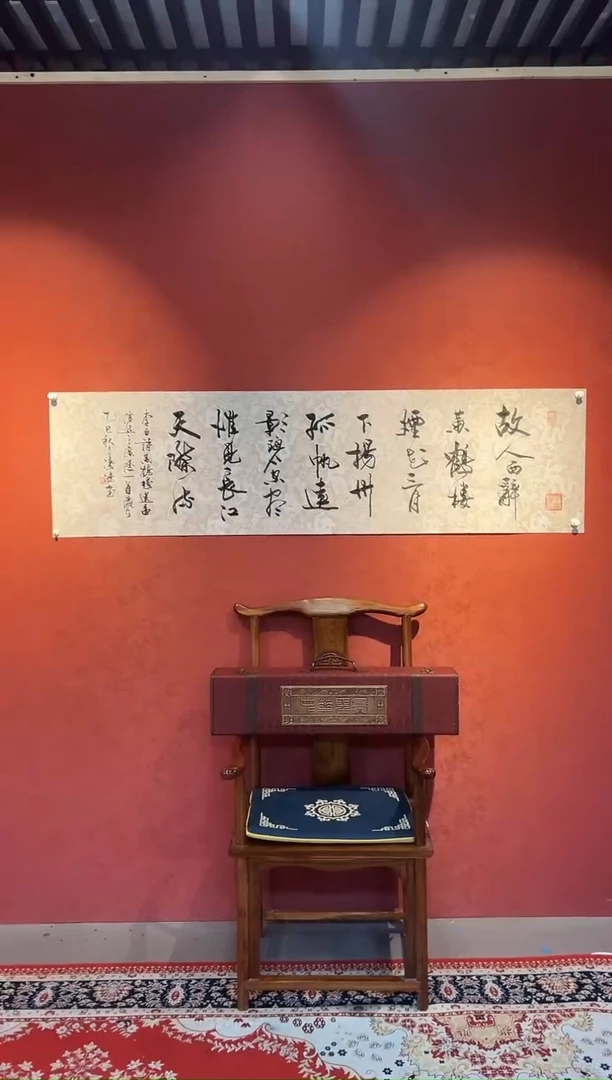 故人西辭
黄鶴楼
煙花三月
下揚州
孤帆遠
影碧空盡
惟見長江
天際流
李白詩黄鶴楼送孟
浩然之廣陵一首歲
乙巳秋
中華國寶